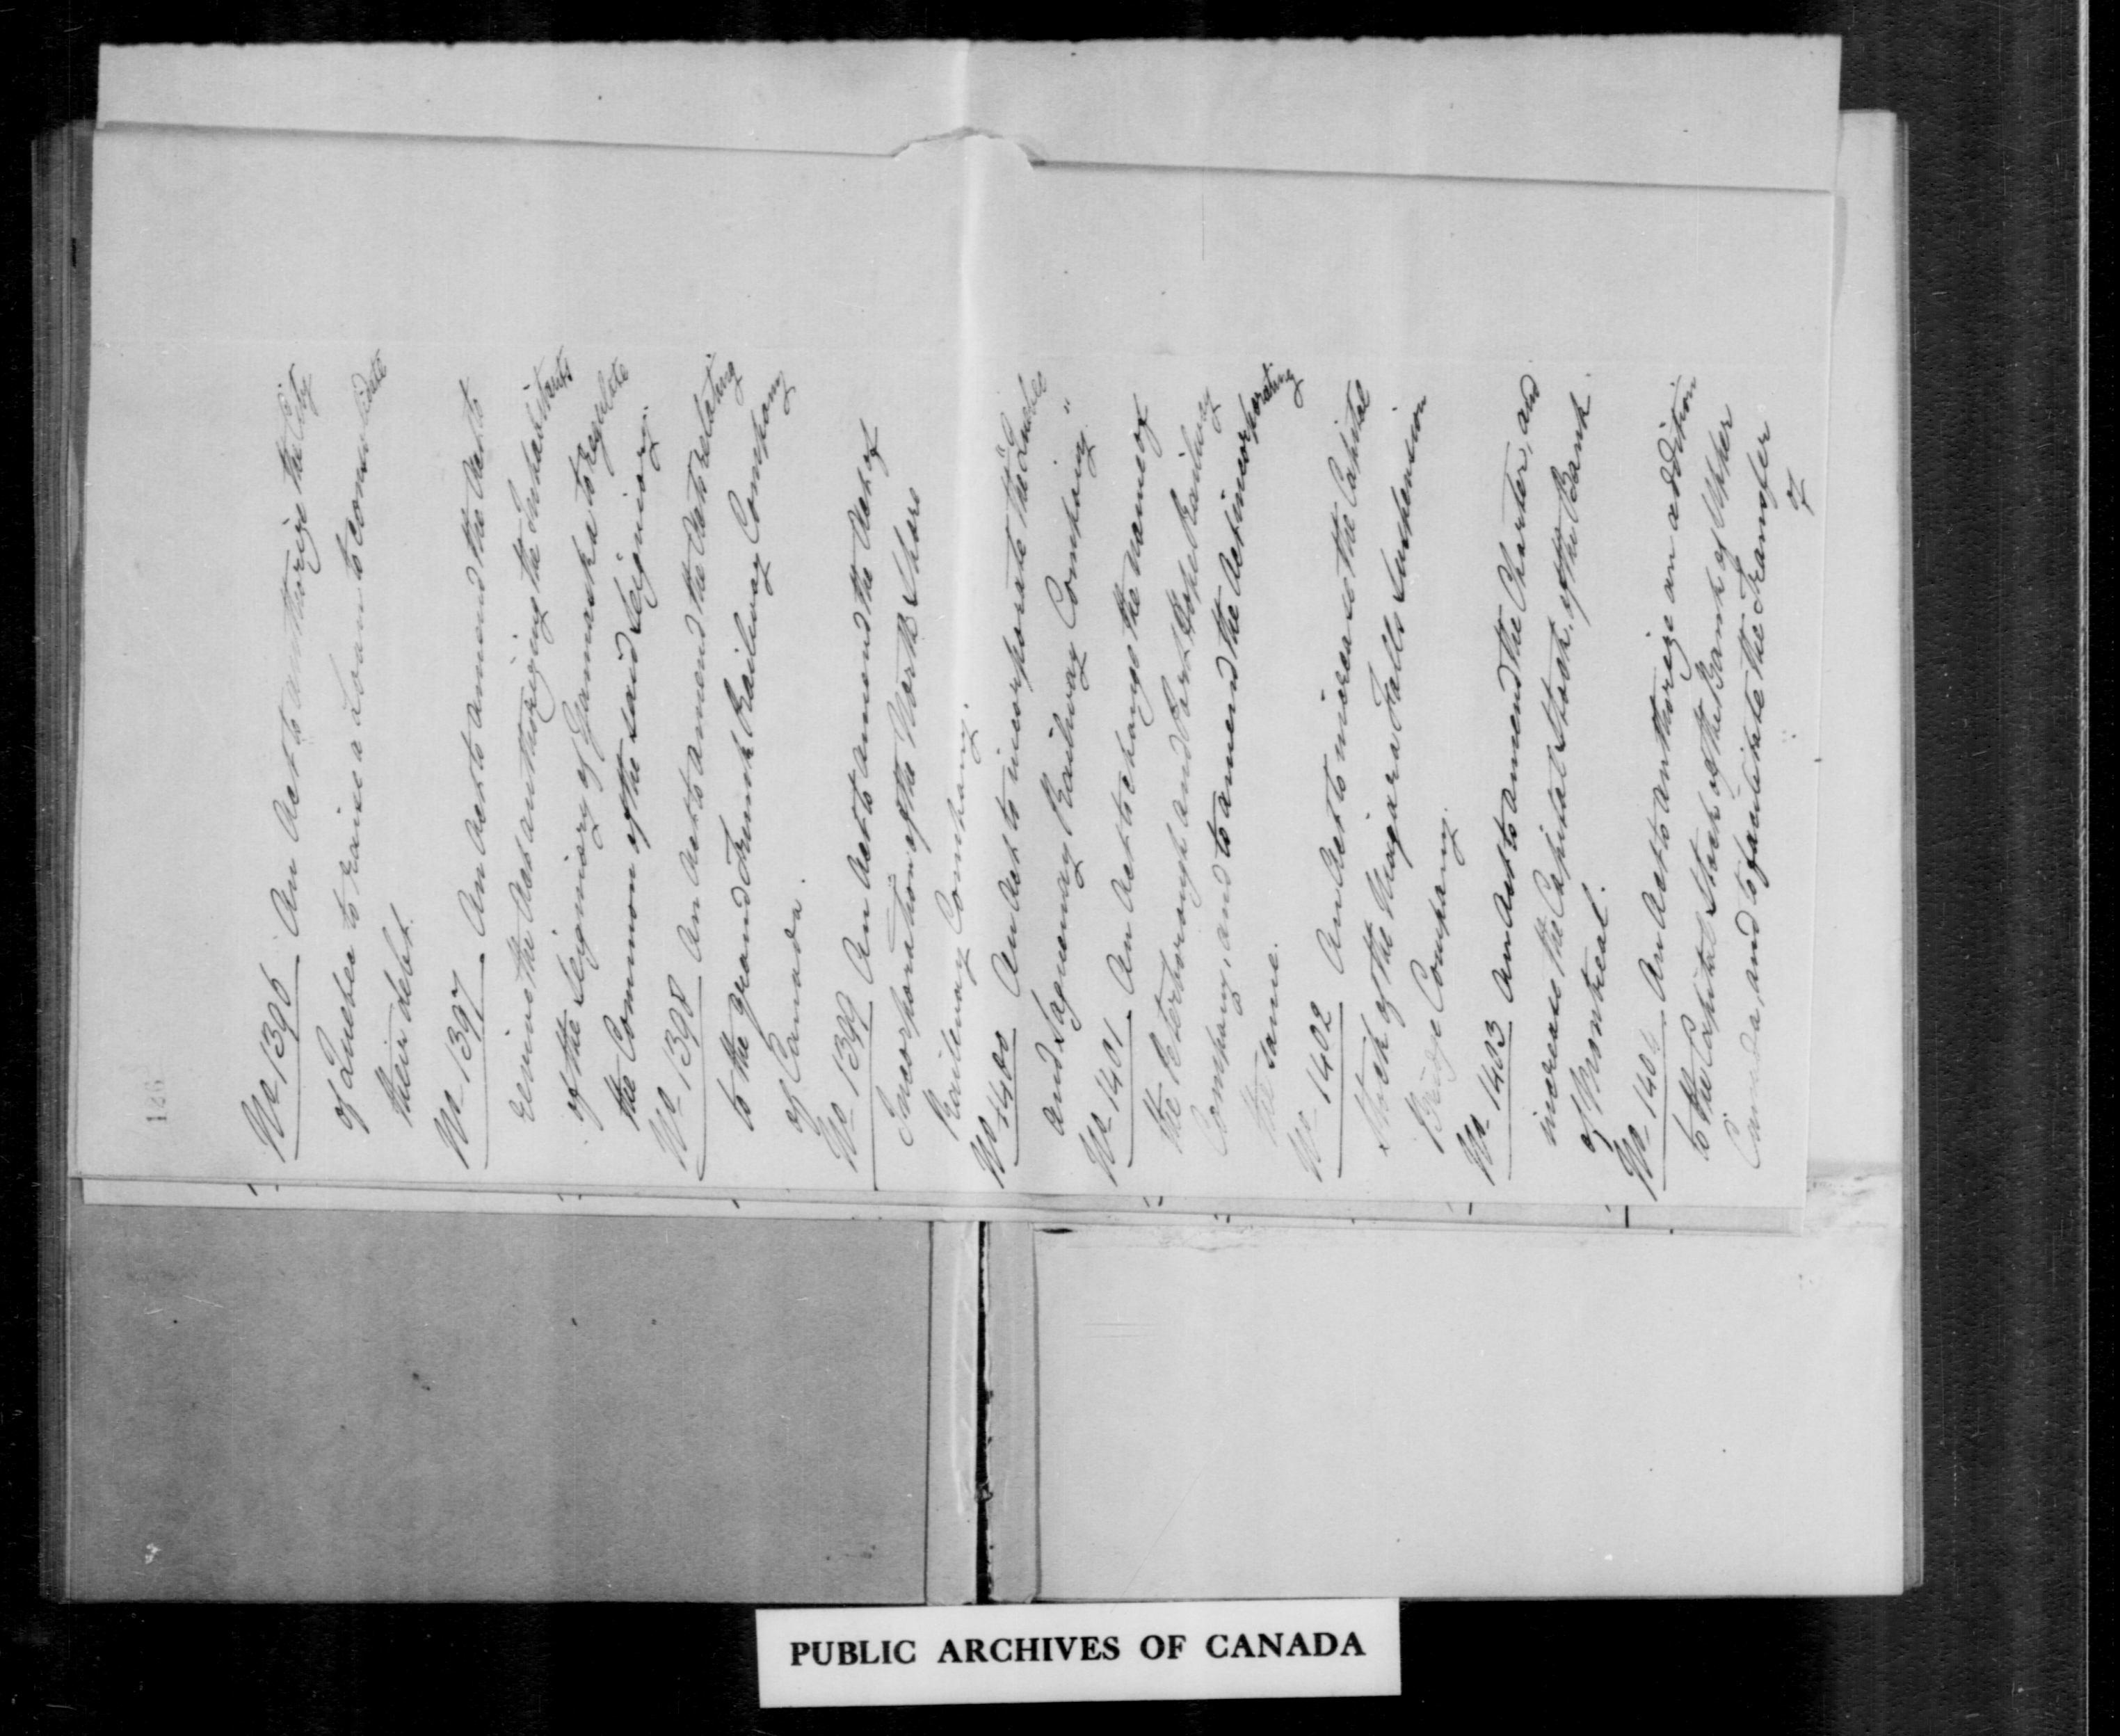 186
No 1396 An Act to authorize the City
of Quebec to raise a Loan to consolidate
their debt.
No 1397 An Act to amend the Act to
revive the Act authorizing the Inhabitants
of the Seigniory of Yamaska to regulate
the Common of the said Seigniory.
No 1398 An Act to amend the Act relating
to the Grand Trunk Railway Company
of Canada.
No 1399 An Act to amend the Act of
Incorporation of the North Shore
Railway Company.
No 1400 An Act to incorporate the "Quebec
and Saguenay Railway Company."
No 1401 An Act to change the name of
the Peterborough and Port Hope Railway
Company, and to amend the Act incorporating
the same.
No 1402 An Act to increase the Capital
Stock of the Niagara Falls Suspension
Bridge Company.
No 1403 An Act to amend the Charter, and
increase the Capital Stock, of the Bank
of Montreal.
No 140 An Act to authorize an addition
to the Capital Stock of the Bank of Upper
Canada, and to facilitate the Transfer
of
PUBLIC ARCHIVES OF CANADA